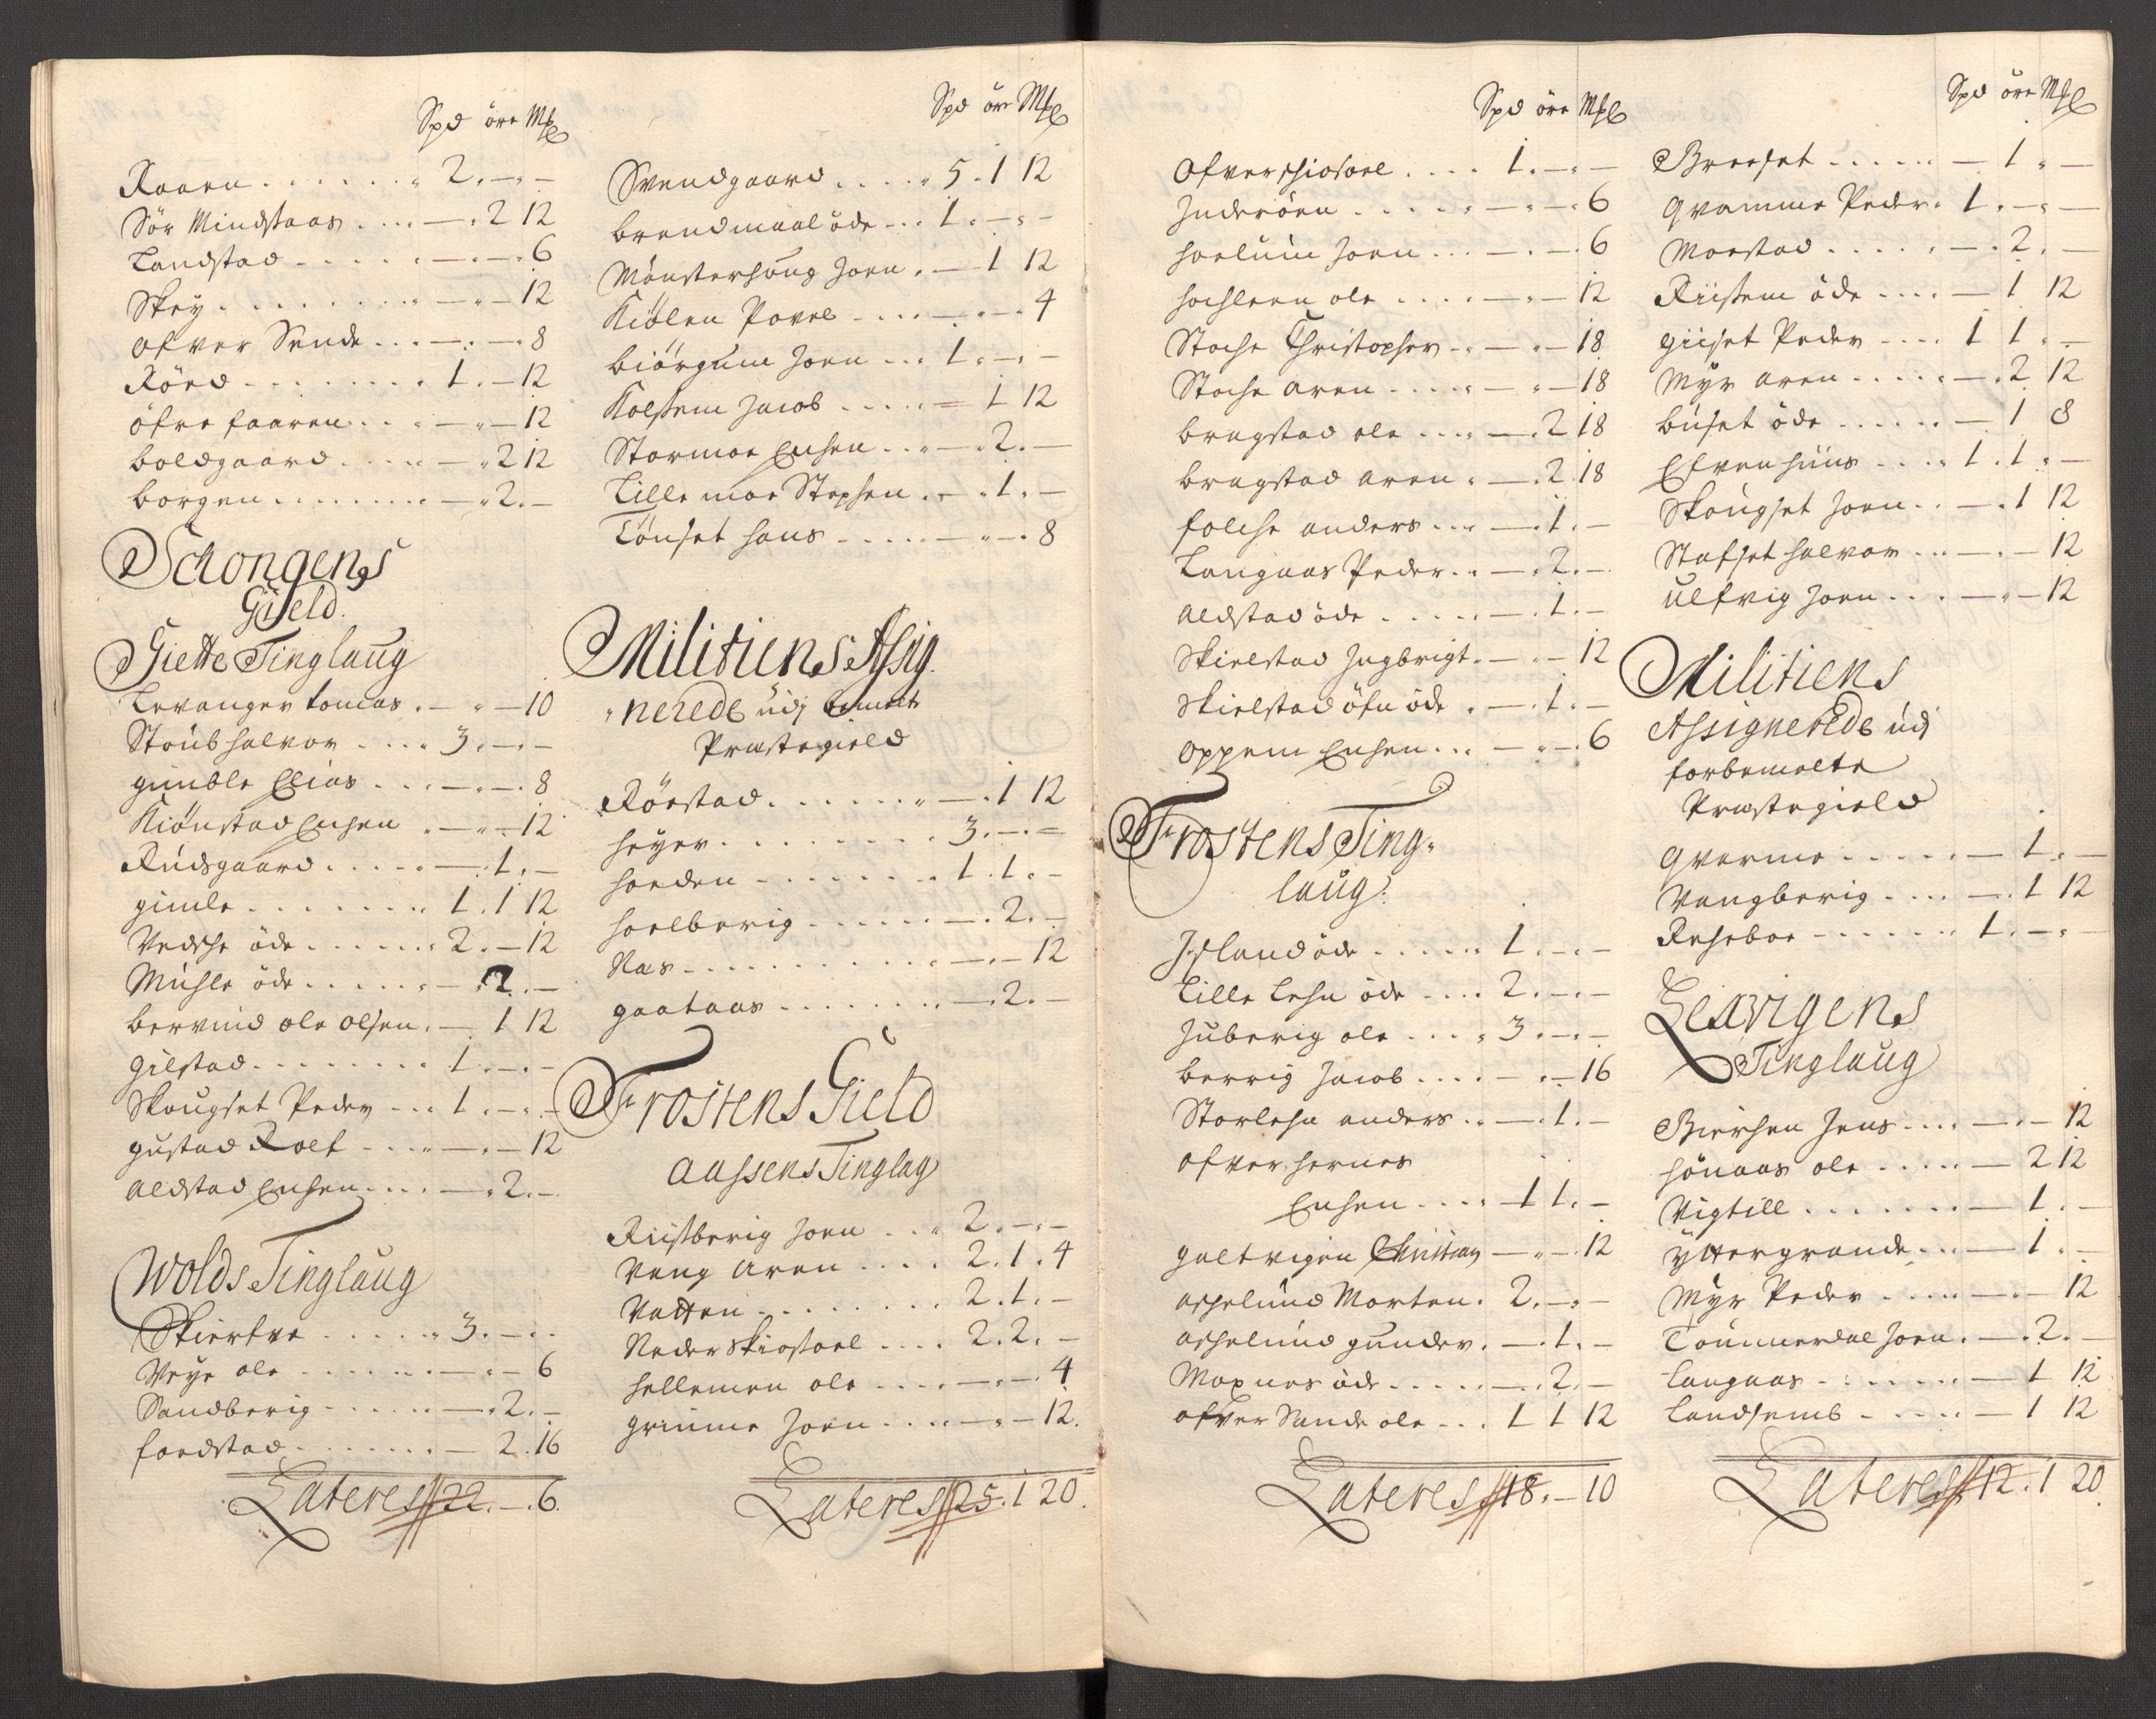 Spd öre Mkl
Raaen . . . . . . 2. – –
Sör Mindstaas . . . – . 2 12
Landstad . . . . – . – . 6
Skey . . . . . . – . – 12
Ofver Sende . . . – . – . 8
Röed . . . . . . 1 . – 12
öfre faaren . . . – . – 12
boldgaard . . . . – . 2 12
borgen . . . . . – . 2 . –
Schongens
Gield
Giette Tinglaug
Levanger tomas . – . – 10
Stoub halvor . . . 3 . – . –
gimble Elias . . . – . – . 8
Kiönstad Ensen . – . – 12
Rudsgaard . . . . – . 1 . –
gimle . . . . . . 1 . 1 12
Vedsche öde . . . . 2 . – 12
Muhle öde . . . . – . 2 . –
bervind ole olsen . – 1 12
gilstad . . . . . 1 . – . –
Skougset Peder . . . 1 . – . –
gustad Rolf . . . – . – 12
aldstad Ensen . . . – . 2 . –
Wolds Tinglaug
Skierfve . . . . . 3 . – . –
Veye ole . . . . . – . – 6
Sandberig . . . . . – . 2 . –
foedstad . . . . . – 2 . 16
Lateres 22 . – . 6
Spd öre Mkl
Svendgaard . . . . 5 . 1 12
brendmaal öde . . . 1 . – . –
Mönsterhoug Joen . – 1 12
Kiölen Povel . . . – . – . 4
biörgum Joen . . . 1 . – . –
Kolsem Jacob . . . . – 1 12
Stormoe Ensen . . . – . 2 . –
Lille moe Stephen . – . 1 . –
Tönset hans . . . . – . – . 8
Militiens Assig
nerede udj
Præstegield
Röestad . . . . . . – . 1 12
heyer . . . . . . 3 . – . –
hoeden . . . . . . 1 . 1 . –
hoelberig . . . . . – . 2 . –
Næs . . . . . . . – . – 12
gaataas . . . . . – . 2 . –
Frostens Gield
Aassens Tinglag
Riistberig Joen . . . 2 . – . –
Vang Aren . . . . 2 . 1 . 4
Vatten . . . . . . 2 . 1 . –
Neder Skiostoel . . . 2 . 2 . –
hellemen ole . . . – . – . 4
grimme Joen . . . . – . – 12 .
Lateres 25 . 1 20 .
Spd öre Mkl
Ofver schiosoel . . . 1 . – . –
Inderöen . . . . . – . – . 6
hoelum Joen . . . – . – . 6
hochleen ole . . . . – . – 12
Stoche Christopher . . – . – 18
Stoche Aren . . . . – . – 18
bragstad ole . . . – . 2 18
bragstad Aren . – . 2 18
folche anders . . . – . 1 . –
Langaas Peder . . – . 2 . –
aldstad öde . . . . – . 1 . –
Skielstad Ingbrigt . – . – 12
Skielstad öfre öde . – . 1 . –
oppem Ensen . . . – . – . 6
Frostens Ting
laug
Island öde . . . . 1 . – . –
Lille Lehn öde . . . 2 . – . –
Juberig ole . . . . 3 . – . –
berrig Jacob . . . . – . – 16
Storlehn anders . . – . 1 . –
ofver hernes
Ensen . . . – 1 1 . –
galtvigen Christian – . – . 12
aschelund Morten . 2 . – . –
aschelund gunder . – . 1 . –
Moxnes öde . . . . – . 2 . –
ofver Sande ole . . . 1 1 12
Lateres 18 . – 10
Spd öre Mkl
Breeset . . . . . . – 1 . –
gramme Peder . 1 . – . –
Moestad . . . . . – . 2 . –
Riistem öde . . . . – 1 12
giiset Peder . . . . 1 1 . –
Myr aren . . . . . – . 2 12
buset öde . . . . . – 1 8
Elfvenhuus . . . . 1 . 1 . –
Skougset Joen . . – . 1 12
Stafset halvor . . . – . – 12
ulfvig Joen . . . – . – 12
Militiens
Assignerede udj
forbemelte
Præstegield
gverme . . . . . – 1 . –
Vangberig . . . . – . 1 12
Reseboe . . . . . . 1 . – . –
Lexvigens
Tinglaug
Bierhen Jens . . . – . – 12
hönaas ole . . . . . – 2 12
Vigtill . . . . . . – 1 . –
yttergrande . . . – 1 . –
Myr Peder . . . . – . – 12
Toumerdal Joen . – . 2 . –
Langaas . . . . . . – 1 12
Landsemb . . . . . – 1 12
Lateres 12 . 1 20 .